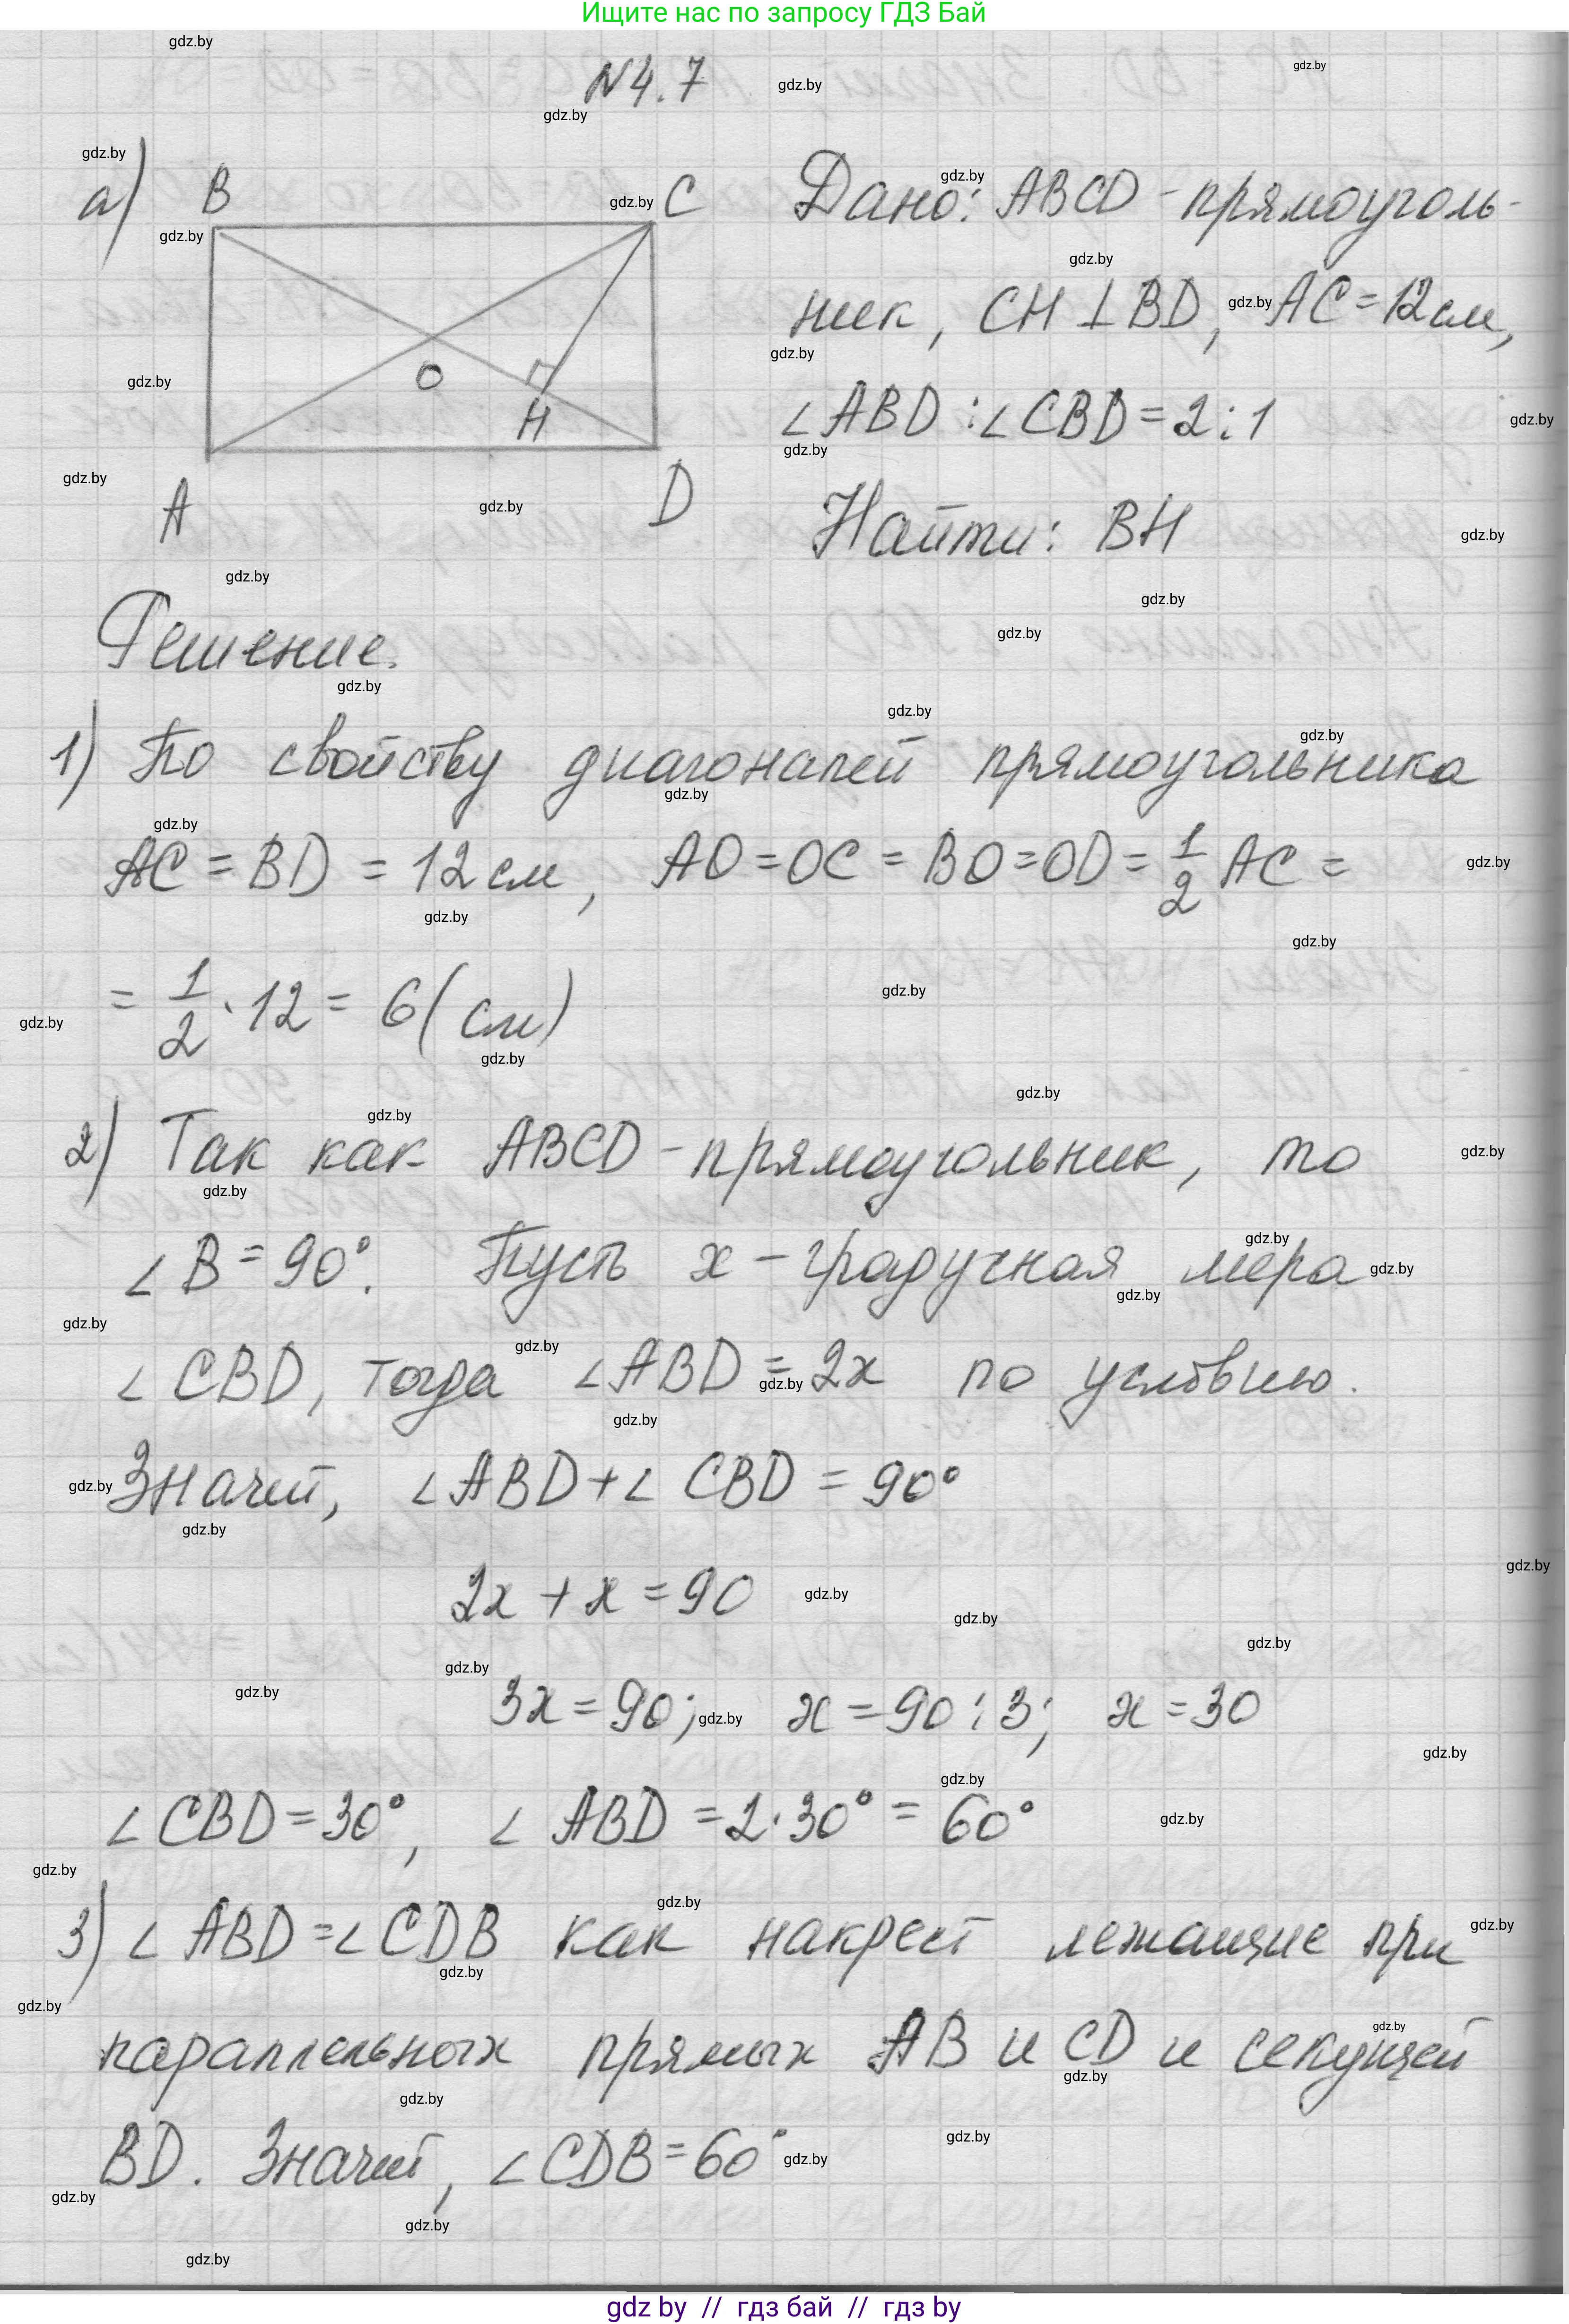 Ищите нас по запросу ГДЗ Бай
N4.7
а)
B
C
O
H
A
D
Дано: ABCD - прямоуголь-
ник, CH ⊥ BD, AC = 12 см,
∠ABD : ∠CBD = 2 : 1
Найти: BH
Решение.
1) По свойству диагоналей прямоугольника
AC = BD = 12 см, AO = OC = BO = OD = 1/2 AC =
= 1/2 · 12 = 6 (см)
2) Так как ABCD - прямоугольник, то
∠B = 90°. Пусть x - градусная мера
∠CBD, тогда ∠ABD = 2x по условию.
Значит, ∠ABD + ∠CBD = 90°
2x + x = 90
3x = 90; x = 90 : 3; x = 30
∠CBD = 30°, ∠ABD = 2 · 30° = 60°
3) ∠ABD = ∠CDB как накрест лежащие при
параллельных прямых AB и CD и секущей
BD. Значит, ∠CDB = 60°
gdz by // гдз бай // гдз by